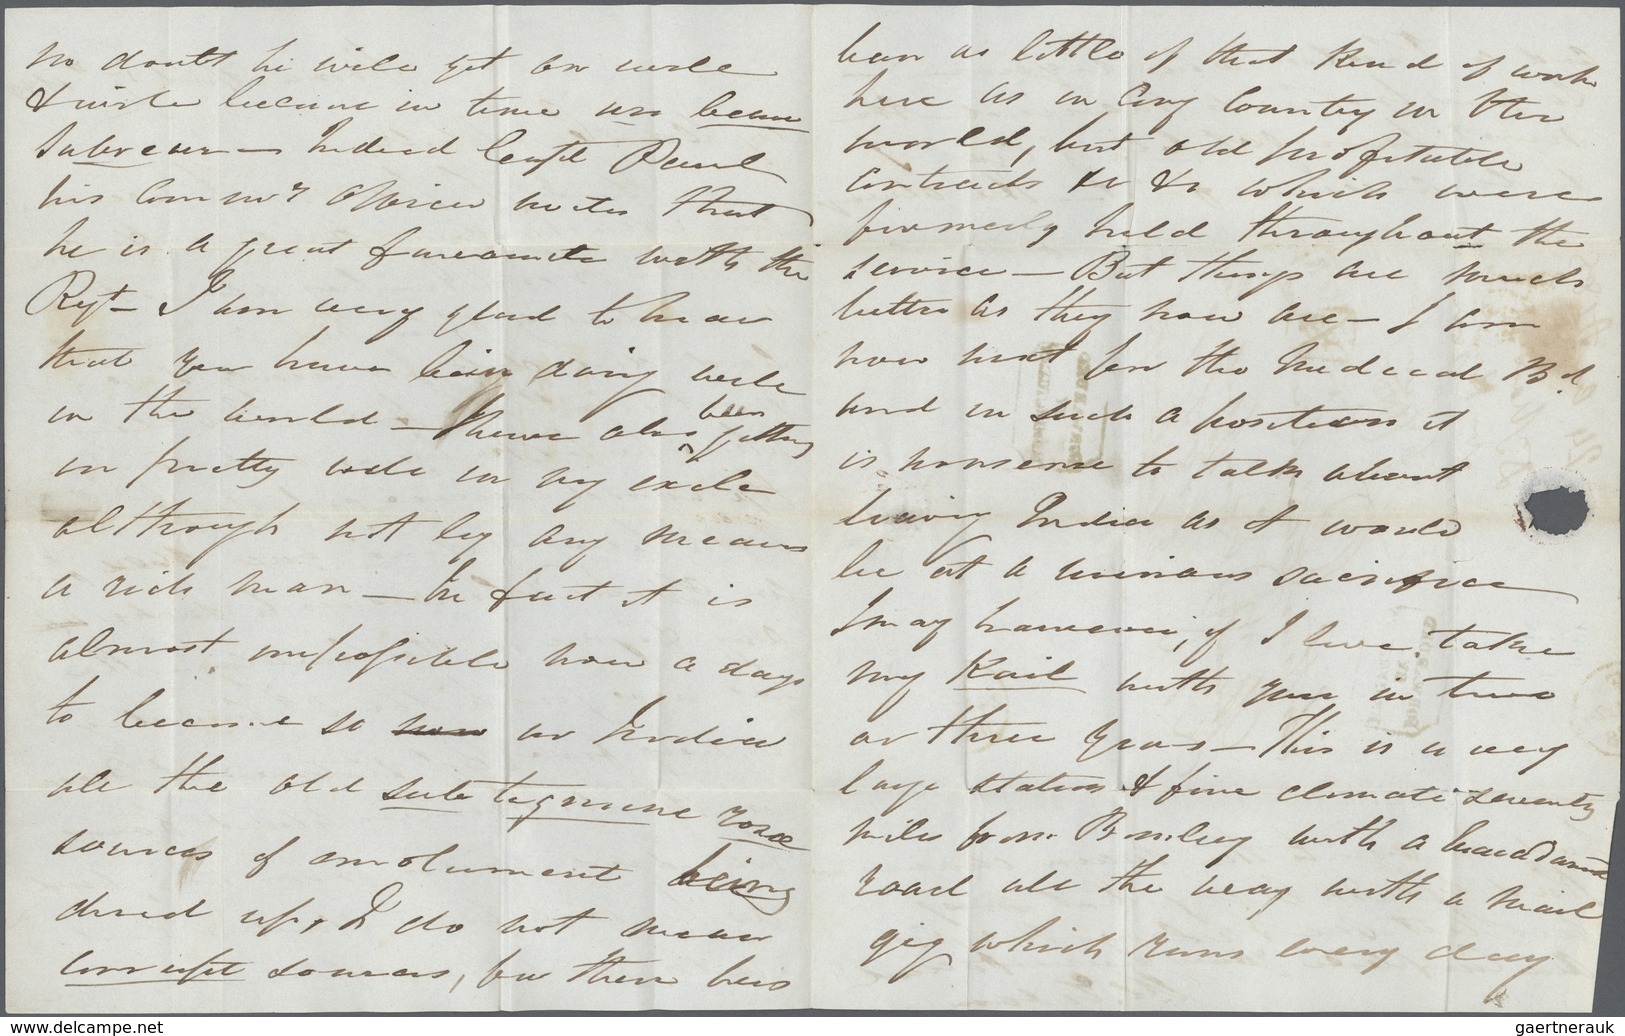 no doubt he will get on well
& will become in time un beau
Sabreur – Indeed Capt Paul
his Comm'g Officer writes that
he is a great favourite with the
Regt – I am very glad to hear
that you have been doing well
in the world – I have also been getting
on pretty well in my exile
although not by any means
a rich man – In fact it is
almost impossible now a days
to become so in India
all the old sub tegmine rosae
sources of emolument being
dried up, I do not mean
corrupt sources, for there has
been as little of that kind of work
here as in any Country in the
world, but old profitable
contracts &c &c which were
formerly held throughout the
service – But things are much
better as they now are – I am
now next for the Medical Bd.
and in such a position it
is nonsense to talk about
leaving India as it would
be at a ruinous sacrifice
I may however, if I live, take
my Kail with you in two
or three years – This is a very
large station & fine climate seventy
miles from Bombay with a macadamd
road all the way with a mail
gig which runs every day
gaertnerauk - delcampe.net